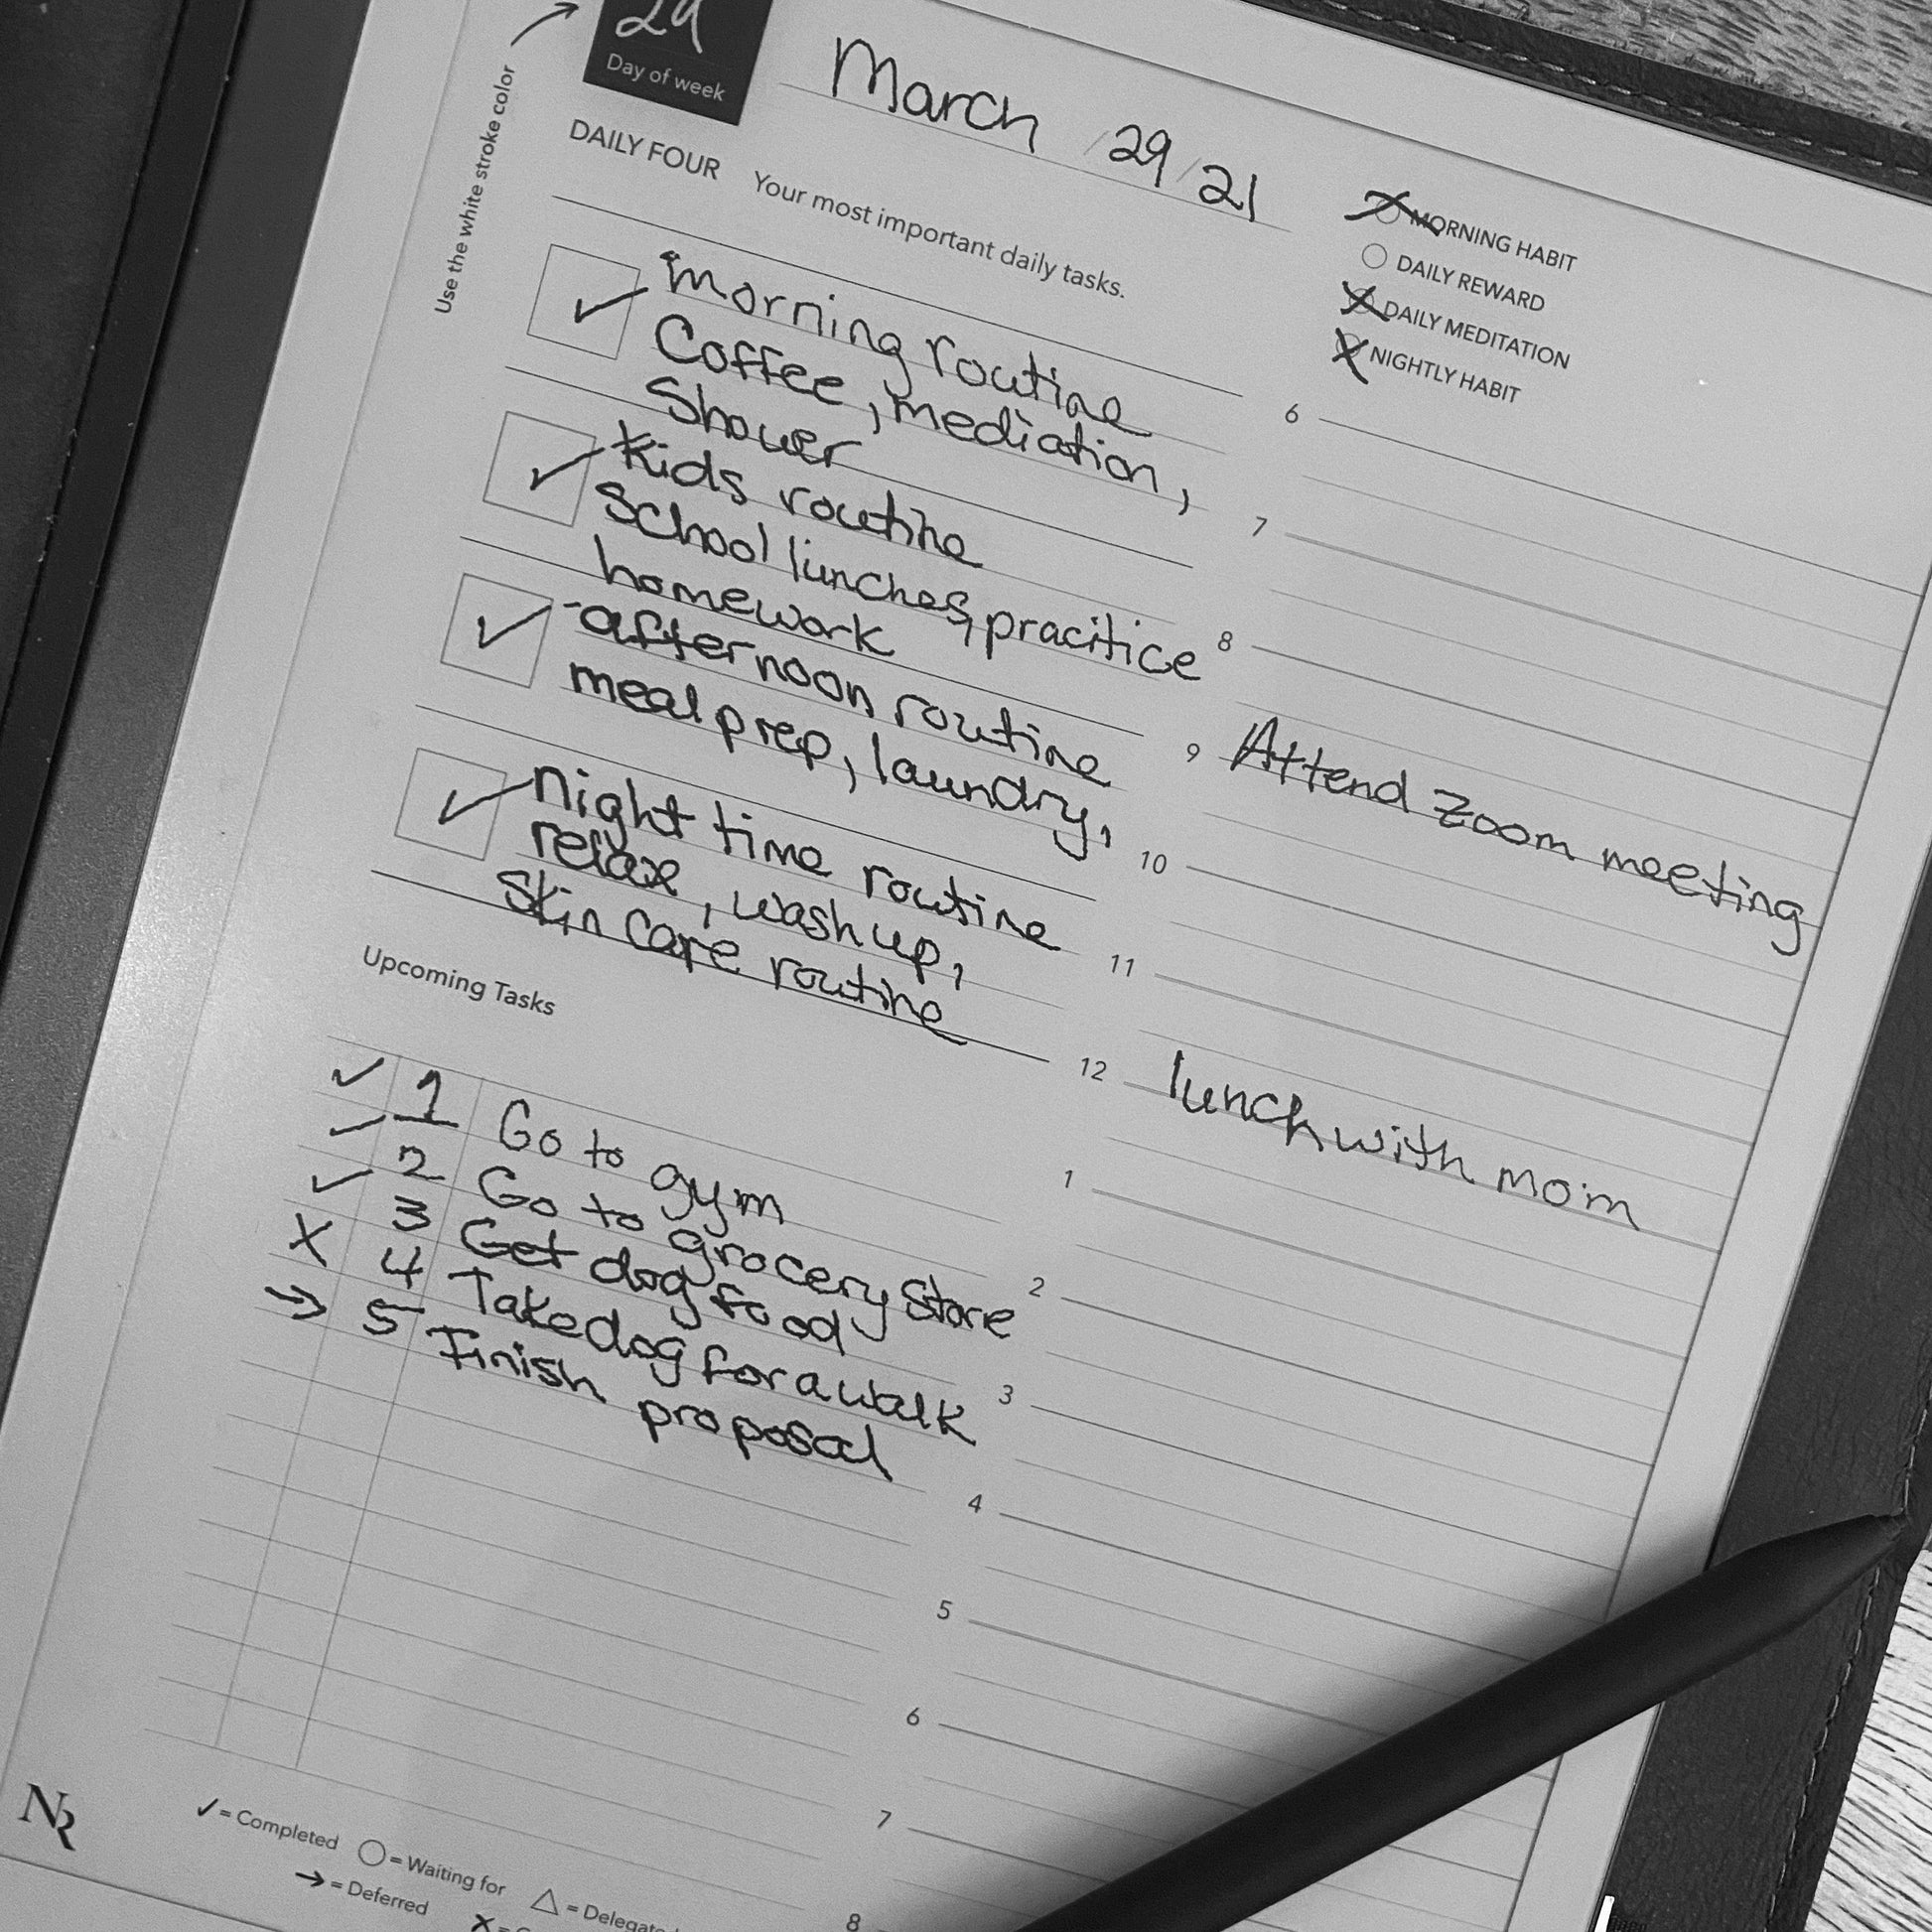 29
Day of week
Use the white stroke color
March 29/21
DAILY FOUR Your most important daily tasks.
MORNING HABIT
DAILY REWARD
DAILY MEDITATION
NIGHTLY HABIT
✓ morning routine
Coffee, mediation,
Shower
✓ Kids routine
School lunches, pracitice
homework
✓ -afternoon routine
meal prep, laundry,
✓ night time routine
relax, wash up,
Skin care routine
Upcoming Tasks
✓ 1 Go to gym
✓ 2 Go to grocery Store
✓ 3 Get dog food
X 4 Take dog for a walk
→ 5 Finish
proposal
6
7
8
9 Attend Zoom meeting
10
11
12 lunch with mom
1
2
3
4
5
6
7
8
NR
✓ = Completed ○ = Waiting for △ =
→ = Deferred X =